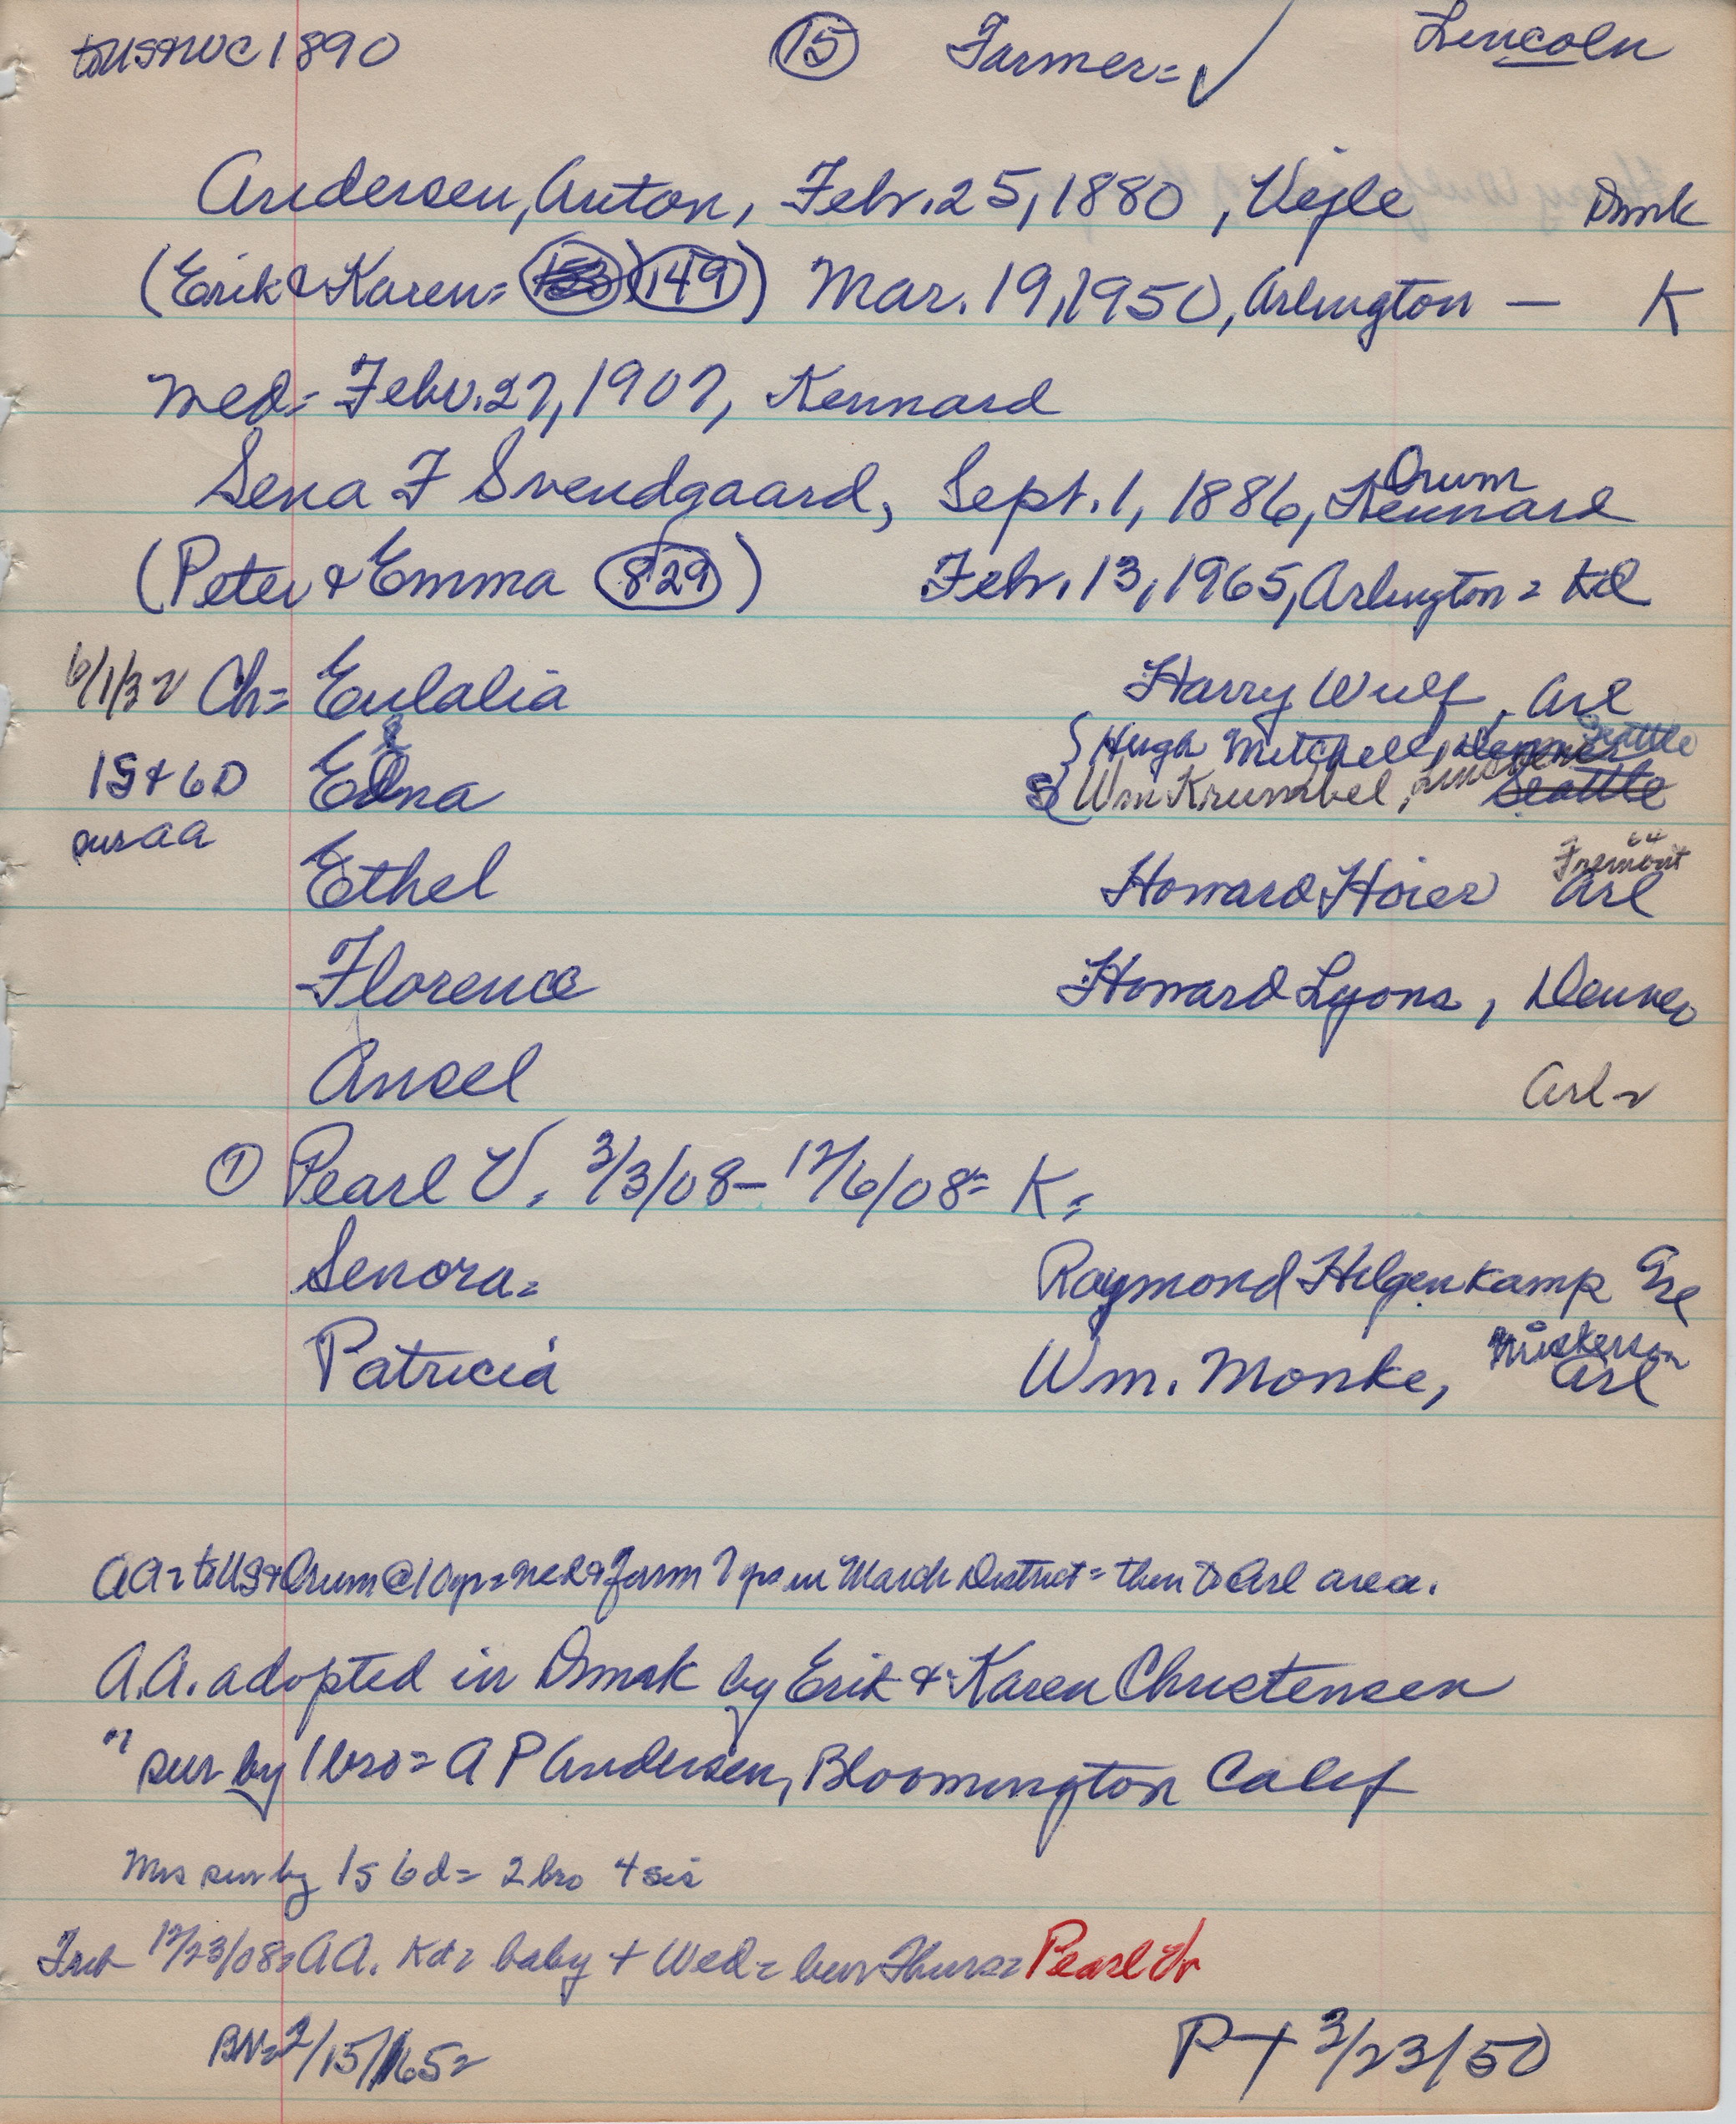 to US & WC 1890 (15) Farmer= ✓ Lincoln
Andersen, Anton, Febr. 25, 1880, Vejle Dmk
(Erik & Karen= (149)) Mar. 19, 1950, Arlington — K
Med= Febr. 27, 1907, Kennard
Sena F Svendgaard, Sept. 1, 1886, Kennard Orum
(Peter & Emma (829)) Febr. 13, 1965, Arlington = Kd
6/1/32 Ch= Eulalia Harry Wulf, Arl
Hugh Mitchell, Denver Seattle
1S + 6D Edna Wm Krumbel, Seattle
sur AA
Ethel Howard Hoier Arl Fremont 64
Florence Howard Lyons, Denver
Ansel Arl
① Pearl V. 3/3/08 - 12/6/08= K=
Senora= Raymond Hilgenkamp Arl
Patricia Wm. Monke, Arl Nickerson
AA= to US & Orum @ 10yr= Med & farm 7 yrs in March District= then to Arl area.
A.A. adopted in Dmrk by Erik & Karen Christensen
" sur by 1 bro= A P Andersen, Bloomington Calif
Mrs sur by 1S 6d= 2 bro 4 sis
Trib 12/23/08= AA. Kd= baby + Wed= bur Thurs= Pearl V
BN= 2/15/65= P+ 3/23/50